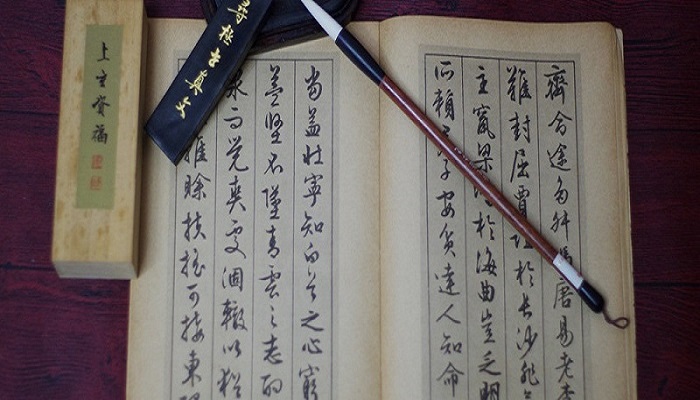 齊命途多舛馮唐易老李
難封屈賈誼於長沙非
主竄梁於海曲豈乏明
所賴君子安貧達人知命
當益壯寧知白首之心窮
益堅不墜青雲之志酌
泉而覺爽處涸轍以猶
雖賒扶搖可接東隅